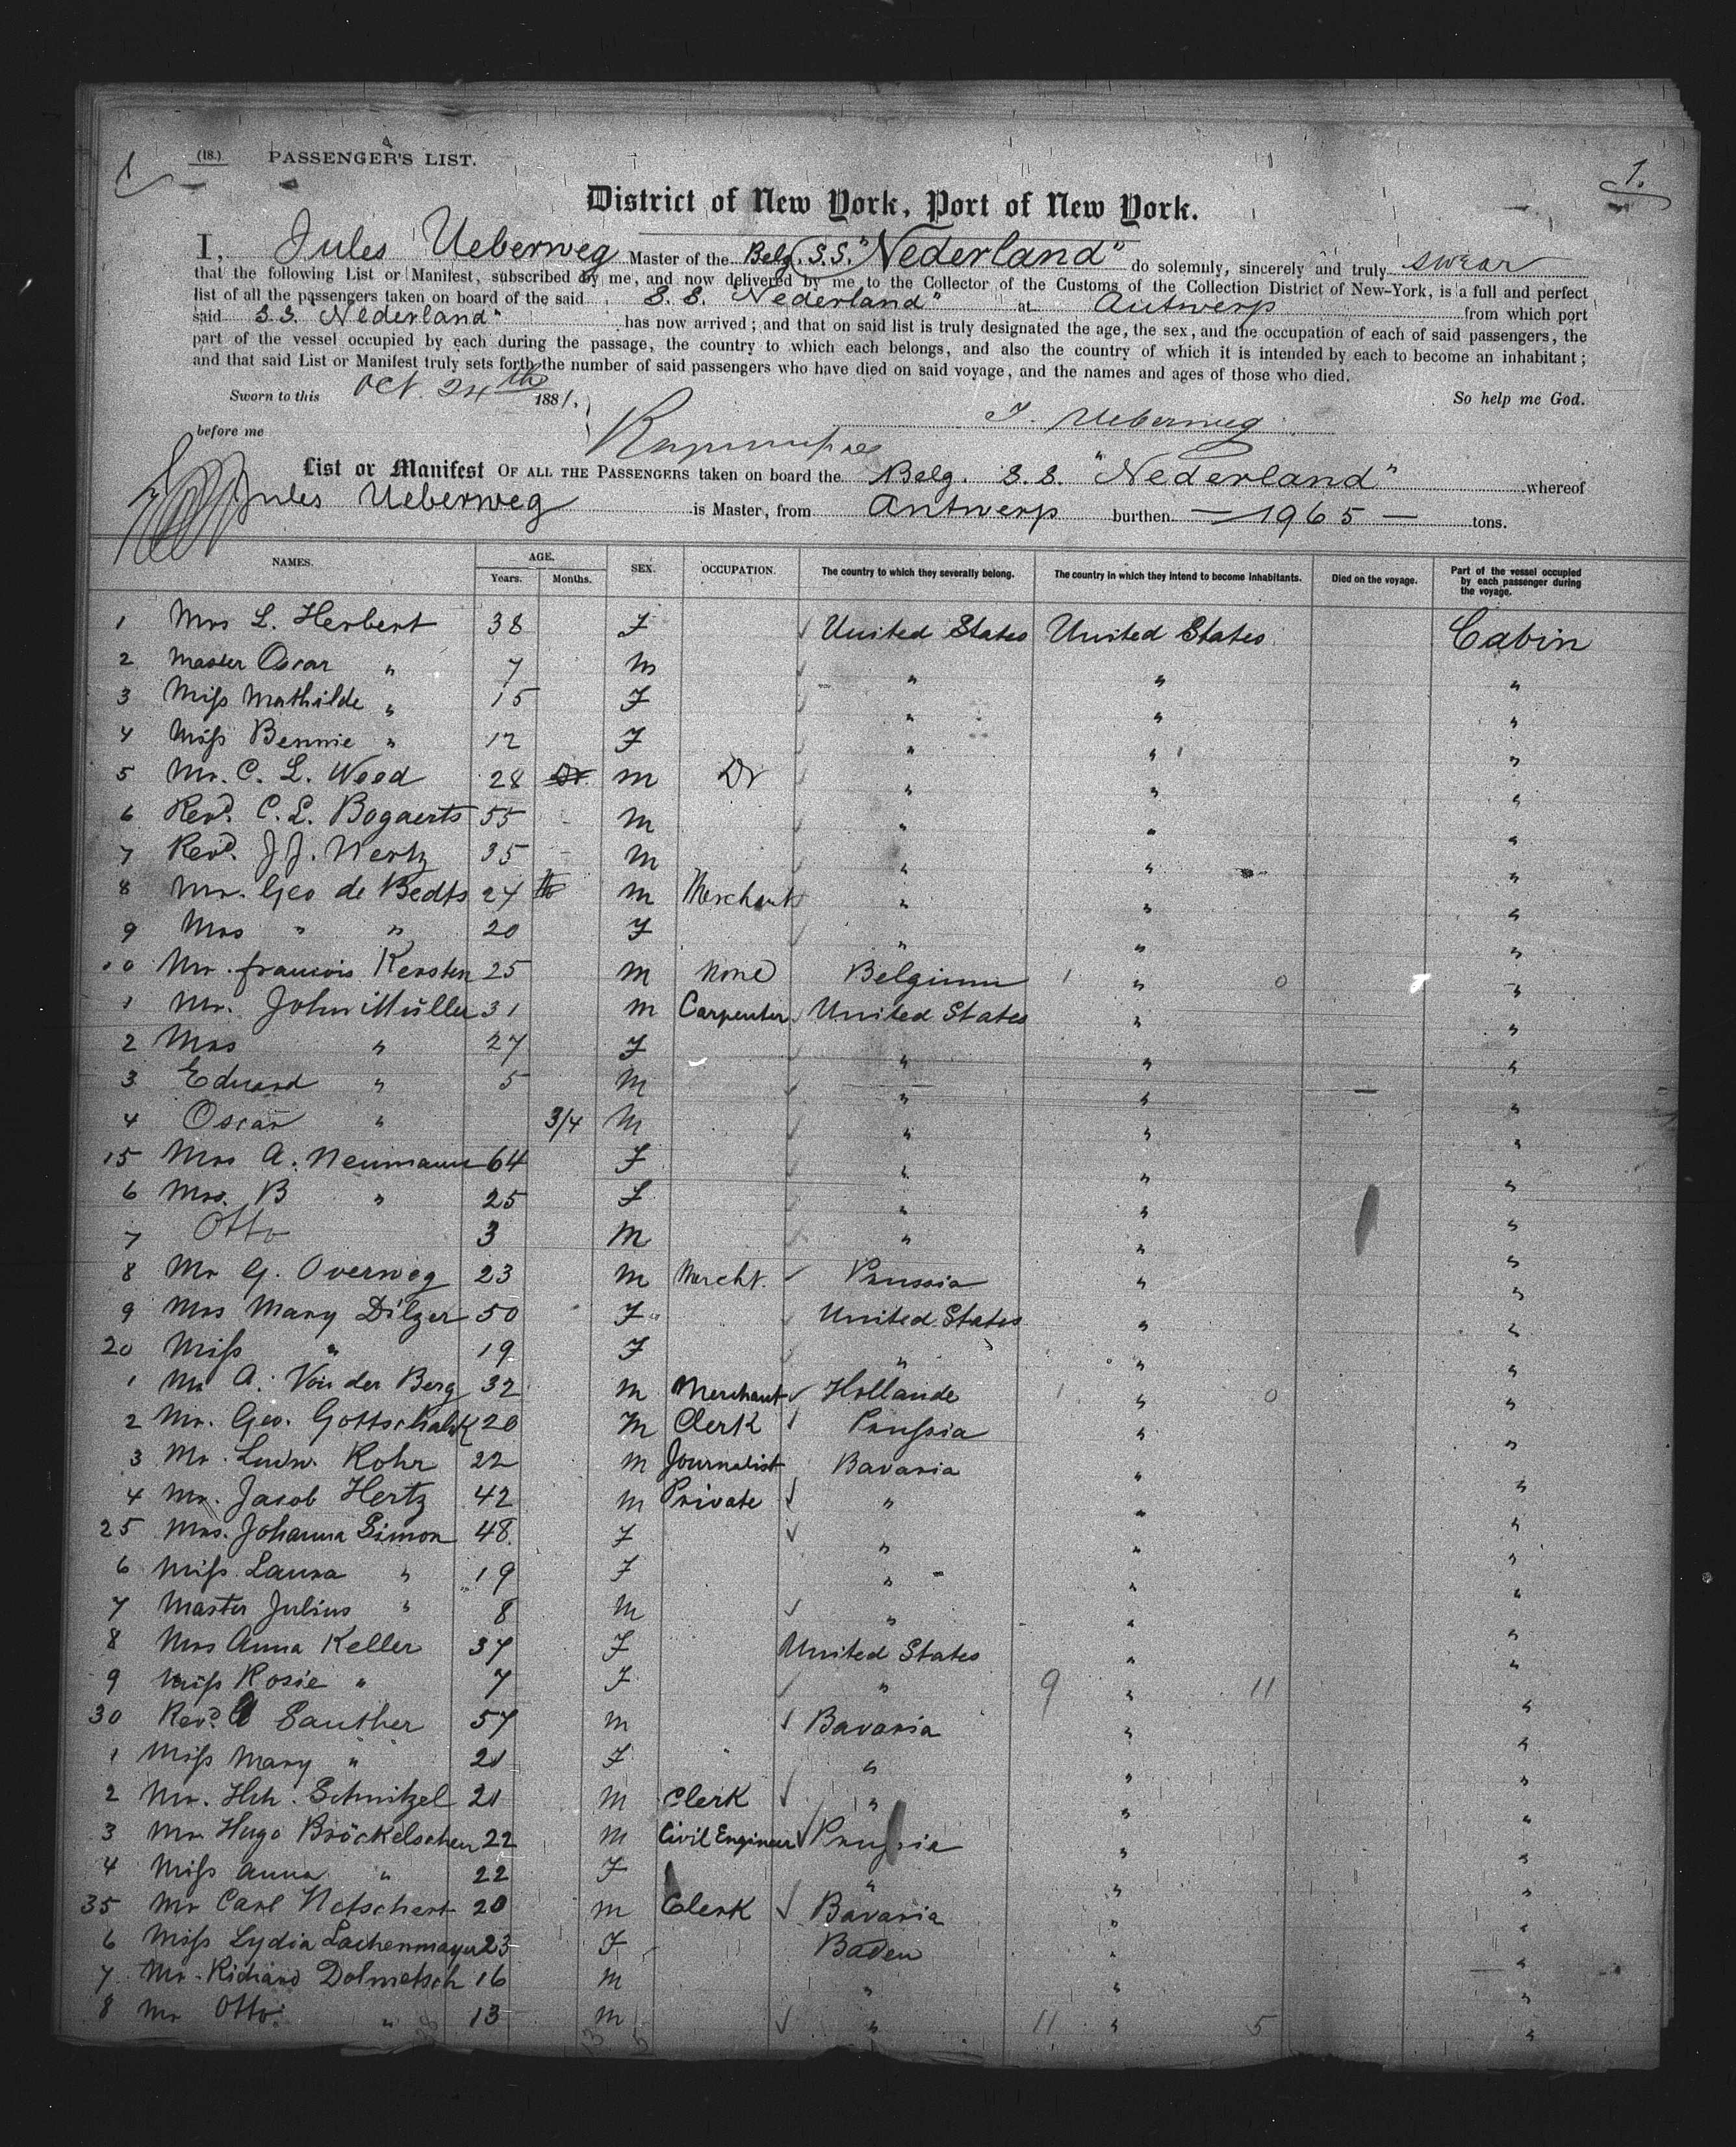 (18.) PASSENGER'S LIST.
1 1.
District of New York, Port of New York.
I, Jules Ueberweg Master of the Belg. S.S. "Nederland" do solemnly, sincerely and truly swear
that the following List or Manifest, subscribed by me, and now delivered by me to the Collector of the Customs of the Collection District of New-York, is a full and perfect
list of all the passengers taken on board of the said S. S. Nederland" at Antwerp from which port
said S.S. Nederland" has now arrived; and that on said list is truly designated the age, the sex, and the occupation of each of said passengers, the
part of the vessel occupied by each during the passage, the country to which each belongs, and also the country of which it is intended by each to become an inhabitant;
and that said List or Manifest truly sets forth the number of said passengers who have died on said voyage, and the names and ages of those who died.
Sworn to this Oct. 24th 1881. So help me God.
before me J. Ueberweg
List or Manifest OF ALL THE PASSENGERS taken on board the Belg. S.S. "Nederland" whereof
Jules Ueberweg is Master, from Antwerp burthen — 1965 — tons.
NAMES. AGE. Years. Months. SEX. OCCUPATION. The country to which they severally belong. The country in which they intend to become inhabitants. Died on the voyage. Part of the vessel occupied by each passenger during the voyage.
1 Mrs L. Herbert 38 F United States United States Cabin
2 Master Oscar " 7 M " " "
3 Miss Mathilde " 15 F " " "
4 Miss Bennie " 12 F " " "
5 Mr. C. L. Weed 28 Dr. M Dr " " "
6 Revd. C. L. Bogaerts 55 M " " "
7 Revd. J. J. Wertz 35 M " " "
8 Mr. Geo de Bedts 24 M Merchant " " "
9 Mrs " " 20 F " " "
10 Mr. francois Kersten 25 M None Belgium 1 " 0 "
1 Mr. John Müller 31 M Carpenter United States " "
2 Mrs " 27 F " " "
3 Eduard " 5 M " " "
4 Oscar " 3/4 M " " "
15 Mrs A. Neumann 64 F " " "
6 Mrs. B " 25 F " " "
7 Otto 3 M " " "
8 Mr G. Overweg 23 M Mercht. Prussia " "
9 Mrs Mary Dilzer 50 F United States " "
20 Miss " 19 F " " "
1 Mr A. Von der Berg 32 M Merchant Hollande 1 " 0 "
2 Mr. Geo. Gottschalk 20 M Clerk Prussia " "
3 Mr. Ludw. Rohr 22 M Journalist Bavaria " "
4 Mr. Jacob Hertz 42 M Private " " "
25 Mrs. Johanna Simon 48 F " " "
6 Miss Laura " 19 F " " "
7 Master Julius " 8 M " " "
8 Mrs Anna Keller 37 F United States " "
9 Miss Rosie " 7 F " 9 " 11 "
30 Revd. A Sauther 57 M Bavaria " "
1 Miss Mary " 21 F " " "
2 Mr. Hch. Schnitzel 21 M Clerk " " "
3 Mr Hugo Bröckelschen 22 M Civil Engineer Prussia " "
4 Miss Anna " 22 F " " "
35 Mr Carl Netschert 20 M Clerk Bavaria " "
6 Miss Lydia Lachenmayer 23 F Baden " "
7 Mr. Richard Dolmetsch 16 M " " "
8 Mr Otto " 13 M " 11 " 5 "